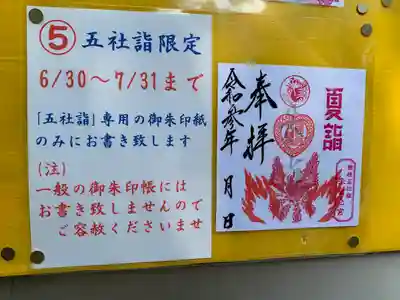 ⑤ 五社詣限定
6/30～7/31まで
「五社詣」専用の御朱印紙
のみにお書き致します
(注)
一般の御朱印帳には
お書き致しませんので
ご容赦くださいませ
夏詣
奉拝
令和参年 月 日